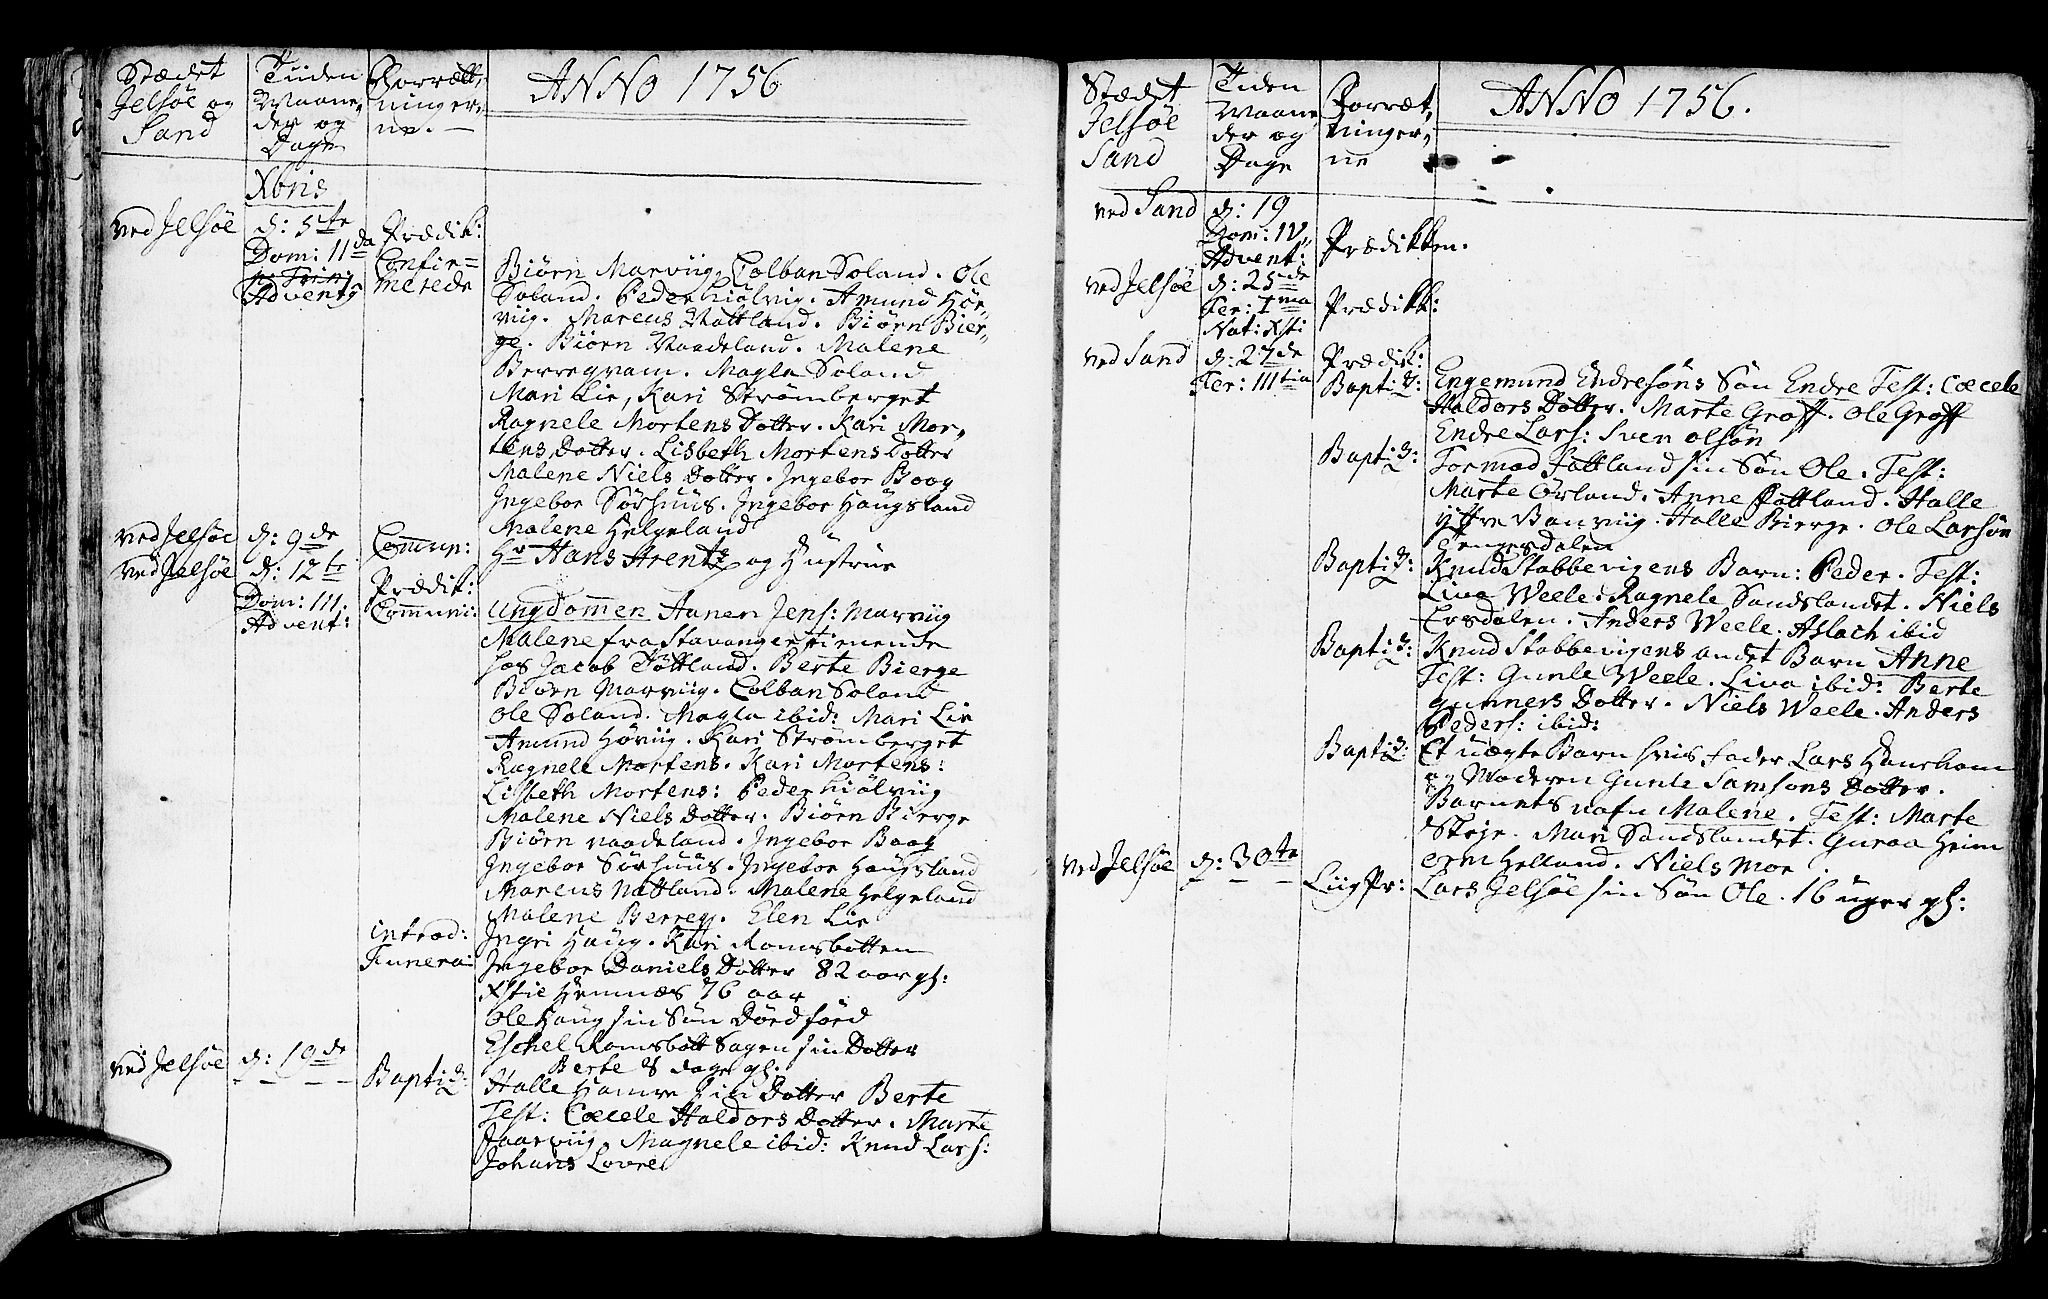 Stædet
Jelsøe og
Sand
Tiiden
Maane,,
der og
Dage
Forrætt,,
ninger,,
ne.
ANNO 1756
Xbris
ved Jelsøe
d: 5te
Dom: 11da
Adventg
Prædik:
Confir=
merede
Biørn Marviig, Colban Soland. Ole
Soland. Peder hiølvig. Amund Hør,,
viig. Marcus Nattland. Biørn Bier,,
ge. Biørn Naadeland. Malene
Berreqvam. Magla Soland
Mari Lie, Kari Strømberget
Ragnele Mortens Dotter. Kari Mor,,
tens Dotter. Lisbeth Mortens Dotter
Malene Niels Dotter. Ingebor Boog
Ingebor Sørhuus. Ingebor Haugsland
Malene Helgeland
ved Jelsøe
d: 9de
Commun:
Hr Hans Arentz og Hustrue
ved Jelsøe
d: 12te
Dom: III.
Advent:
Prædik:
Communi:
Ungdommen Aanen Jens: Marviig
Malene fra Stavanger tienende
hos Jacob Tøttland. Berte Bierge
Biørn Marviig. Colban Soland
Ole Soland. Magla ibid: Mari Lie
Amund Høviig. Kari Strømberget
Ragnele Mortens. Kari Mortens:
Lisbeth Mortens: Peder hiølviig
Malene Niels Dotter. Biørn Bierge
Biørn naadeland. Ingebor Boog
Ingebor Sørhuus. Ingebor Haugsland
Marcus Nattland. Malene Helgeland
Malene Berreq. Elen Lie
introd:
Ingri Haug. Kari Romsbotten
Funera:
Ingebor Daniels Dotter 82 aar gl:
Xstie Hemnæs 76 aar
Ole Haug sin Søn Dødføed
Eschel Romsbott Sagen sin Dotter
Berte 8 dage gl.
ved Jelsøe
d: 19de
Baptiz:
Halle Hamre sin Dotter Berte
Test: Cæcele Haldors Dotter. Marte
Jaarviig. Magnele ibid: Knud Lars:
Johans Lovre
Stædet
Jelsøe
Sand
Tiden
Maane
der og
Dage
Forræt,,
ninger,,
ne
ANNO 1756.
ved Sand
d: 19
Dom: IV,,
Advent:
Prædikken.
ved Jelsøe
d: 25de
Fer: Ima
Nat: Xsti
Prædikk:
ved Sand
d: 27de
Fer: IIItia
Prædik:
Baptiz:
Engemund Endresøns Søn Endre Test: Cæcele
Haldors Dotter. Marte Groff. Ole Groff
Endre Lars: Sven olsøn
Baptiz:
Tormod Fattland sin Søn Ole. Test:
Marte Ørland. Anne Fattland. Halle
yttre Banviig. Halle Bierge. Ole Larsøn
Baptiz:
Knud Stabbevigens Barn: Peder. Test:
Liva Weele. Ragnele Sandslandet. Niels
Ersdalen. Anders Weele. Aslach ibid
Baptiz:
Knud Stabbevigens andet Barn Anne
Test: Gunle Weele. Liva ibid: Berte
gunners Dotter. Niels Weele. Anders
Peders: ibid:
Baptiz:
Et uægte Barn hvis Fader Lars Hauskom
og Moderen Gunle Samsons Dotter.
Barnets nafn Malene. Test: Marte
Steje. Mari Sandslandet. Guraa Heim
orm Helland. Niels Moe.
ved Jelsøe
d: 30te
Liig Pr:
Lars Gelsøe sin Søn Ole. 16 uger gl: